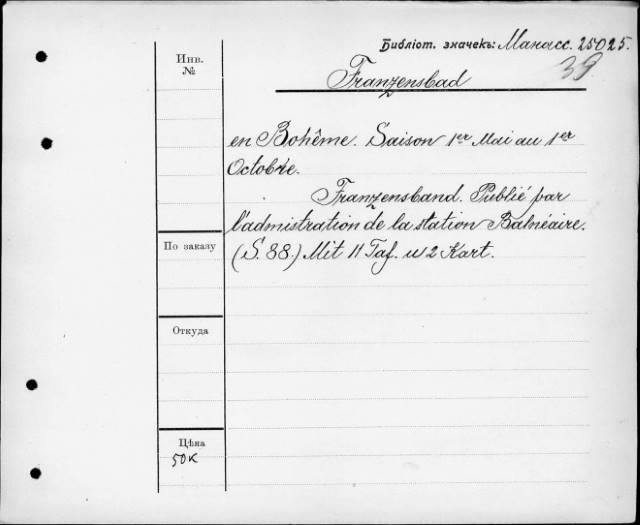 Библіот. значекъ: Манасс. 25025.
39
Инв.
№
Franzensbad
en Bohême. Saison 1er Mai au 1er
Octobre.
Franzensband. Publié par
l'admistration de la station Balnéaire.
(S. 88.) Mit 11 Taf. u 2 Kart.
По заказу
Откуда
Цѣна
50к